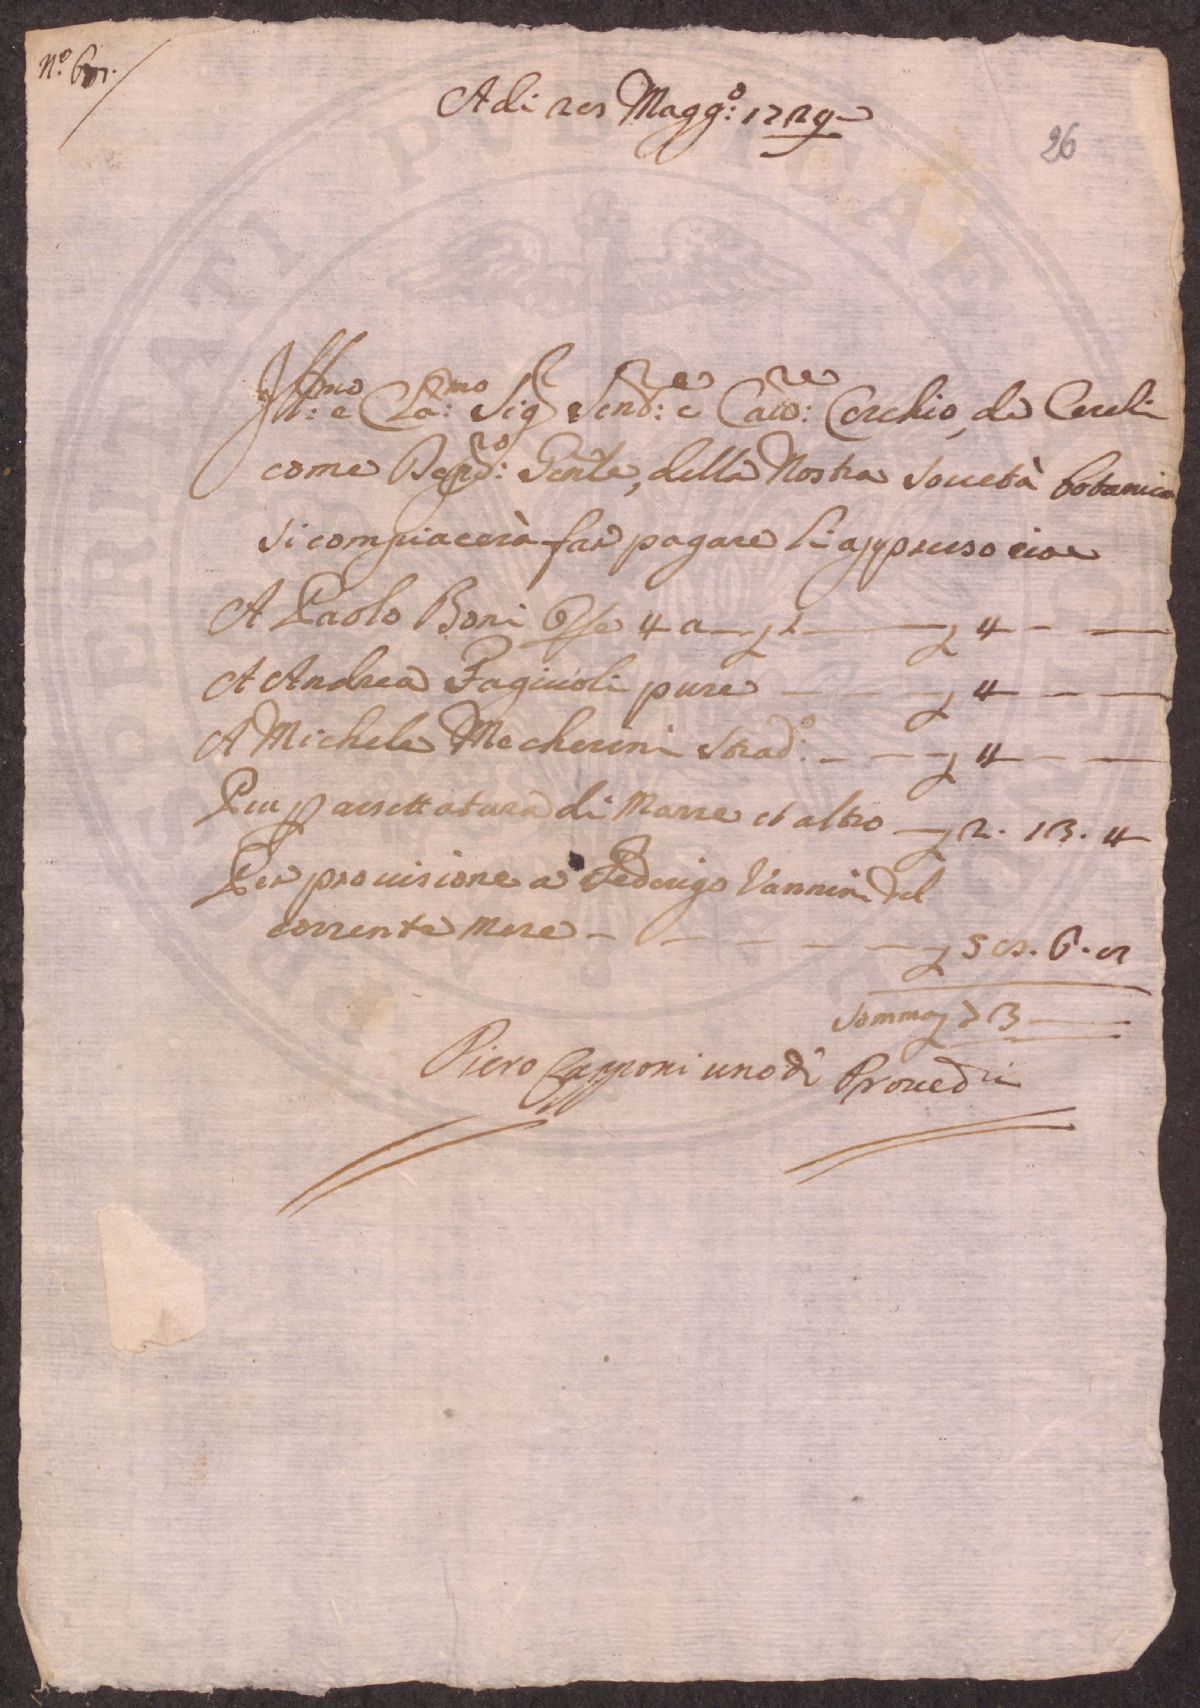 A di 28 Magg:o 1729
26
Ill:mo e Cla:mo Sig.r Send:re e Cav:re Cerchio de Cerchi
come Depo:ro Gente, della Nostra Società botanica
si compiacerà far pagare li appresso cioe
A Paolo Boni Ope 4 a 1 4
A Andrea Fagiuoli pure 4
A Michele Mecherini Strad:o 4
Per rassettatura di Marre et altro 2. 13. 4
Per provisione a Federigo Vannini del
corrente Mese 58. 6. 8
Somma 73
Piero Capponi uno di Proved.ri